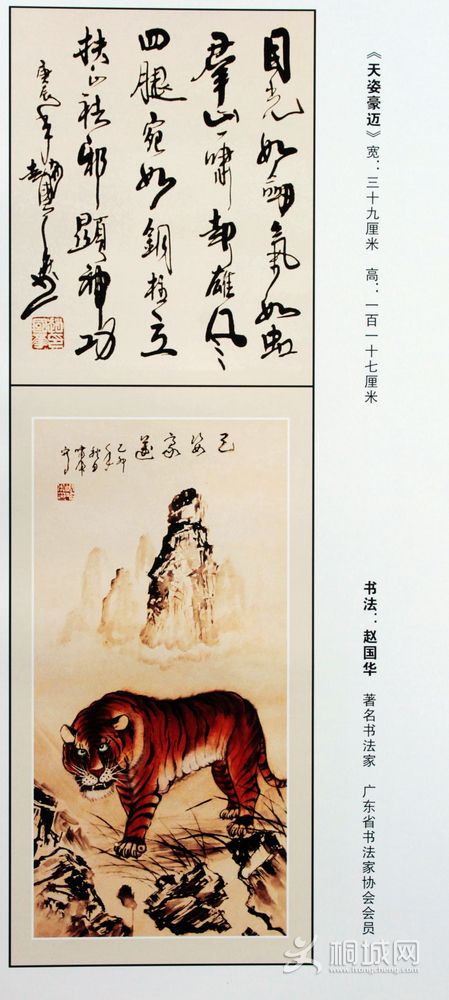 《天姿豪迈》 宽：三十九厘米 高：一百一十七厘米
书法：赵国华 著名书法家 广东省书法家协会会员
目光如劍氣如虹
羣山一嘯雄风
四腿宛如銅柱立
扶正祛邪顯神功
庚辰年
姿豪邁
己卯年秋月
桐城网
www.itongcheng.com